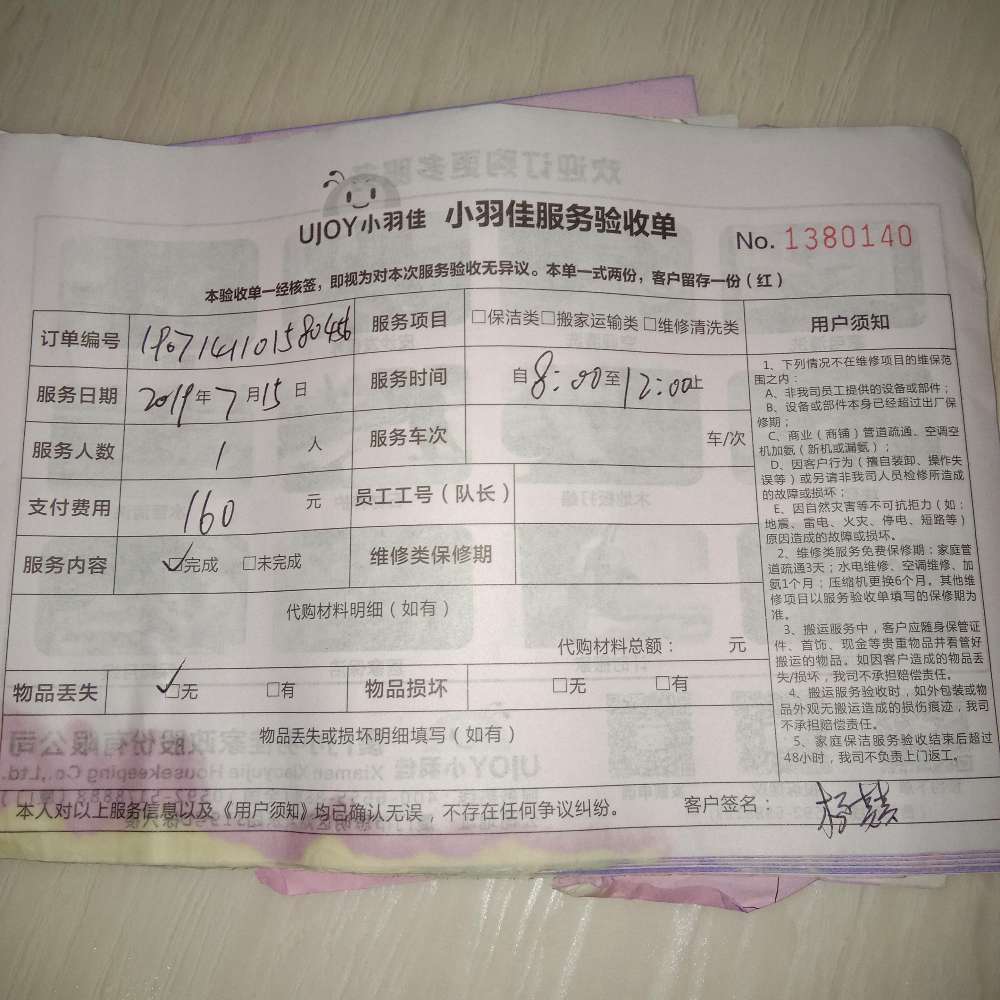 UJOY小羽佳 小羽佳服务验收单
No. 1380140
本验收单一经核签，即视为对本次服务验收无异议。本单一式两份，客户留存一份（红）
订单编号 1907141101580456 服务项目 □保洁类□搬家运输类□维修清洗类
服务日期 2019年7月15日 服务时间 自8:00至12:00止
服务人数 1人 服务车次 车/次
支付费用 160元 员工工号（队长）
服务内容 ☑完成 □未完成 维修类保修期
代购材料明细（如有）
代购材料总额： 元
物品丢失 ☑无 □有 物品损坏 □无 □有
物品丢失或损坏明细填写（如有）
用户须知
1、下列情况不在维修项目的维保范
围之内：
A、非我司员工提供的设备或部件；
B、设备或部件本身已经超过出厂保
修期；
C、商业（商铺）管道疏通、空调空
机加氨（新机或漏氨）；
D、因客户行为（擅自装卸、操作失
误等）或另请非我司人员检修所造成
的故障或损坏；
E、因自然灾害等不可抗拒力（如：
地震、雷电、火灾、停电、短路等）
原因造成的故障或损坏。
2、维修类服务免费保修期：家庭管
道疏通3天；水电维修、空调维修、加
氨1个月；压缩机更换6个月。其他维
修项目以服务验收单填写的保修期为
准。
3、搬运服务中，客户应随身保管证
件、首饰、现金等贵重物品并看管好
搬运的物品。如因客户造成的物品丢
失/损坏，我司不承担赔偿责任。
4、搬运服务验收时，如外包装或物
品外观无搬运造成的损伤痕迹，我司
不承担赔偿责任。
5、家庭保洁服务验收结束后超过
48小时，我司不负责上门返工。
本人对以上服务信息以及《用户须知》均已确认无误，不存在任何争议纠纷。 客户签名：